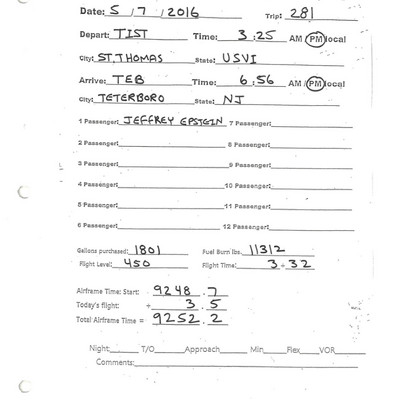 Date: 5 / 7 / 2016 Trip: 281
Depart: TIST Time: 3 : 25 AM / PM local
City: ST. THOMAS State: USVI
Arrive: TEB Time: 6 : 56 AM / PM local
City: TETERBORO State: NJ
1 Passenger: JEFFREY EPSTEIN 7 Passenger:
2 Passenger: 8 Passenger:
3 Passenger: 9 Passenger:
4 Passenger: 10 Passenger:
5 Passenger: 11 Passenger:
6 Passenger: 12 Passenger:
Gallons purchased: 1801 Fuel Burn lbs. 11312
Flight Level: 450 Flight Time: 3 + 32
Airframe Time: Start: 9248 . 7
Today's flight: + 3 . 5
Total Airframe Time = 9252 . 2
Night: T/O Approach Min Flex VOR
Comments: